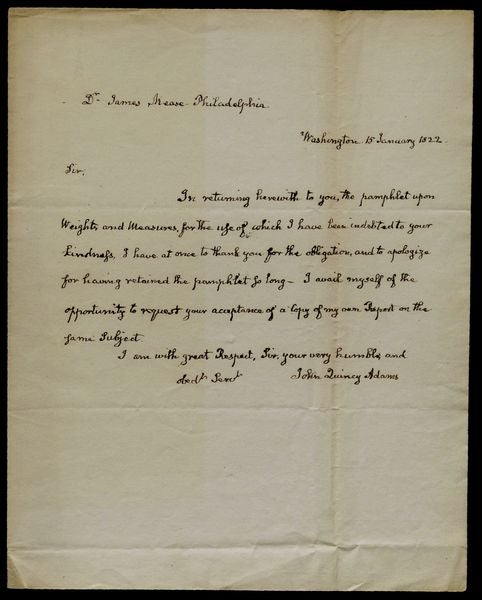 Dr James Mease Philadelphia
Washington 15 January 1822
Sir,
In returning herewith to you, the pamphlet upon
Weights and Measures, for the use of which I have been indebted to your
kindness, I have at once to thank you for the obligation, and to apologize
for having retained the pamphlet so long— I avail myself of the
opportunity to request your acceptance of a Copy of my own Report on the
same Subject
I am with great Respect, Sir, your very humble and
obedt Servt
John Quincy Adams